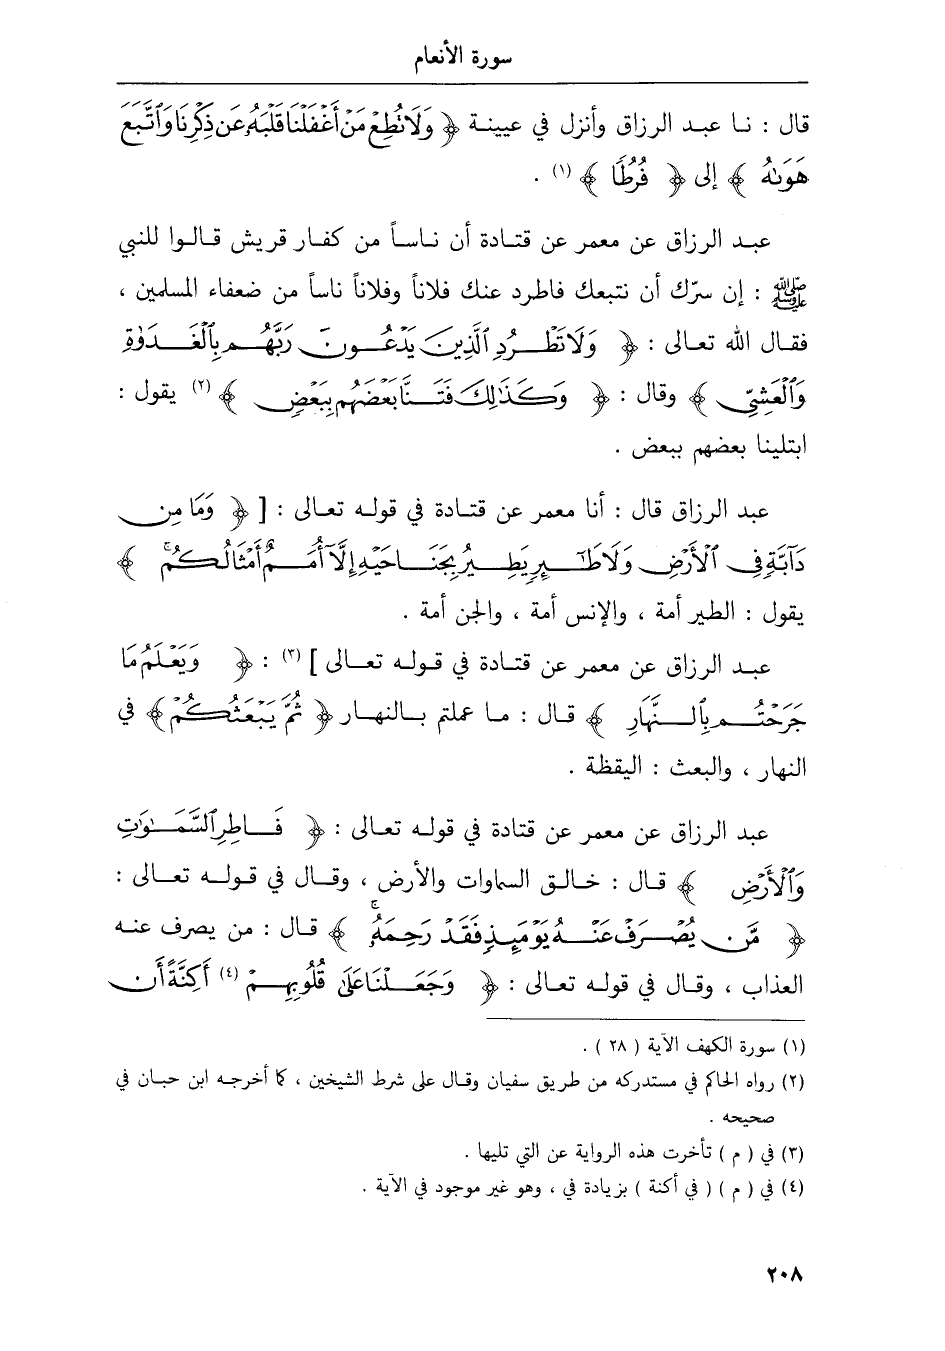 سورة الأنعام
قال : نا عبد الرزاق وأنزل في عيينة ﴿ وَلَا تُطِعْ مَنْ أَغْفَلْنَا قَلْبَهُ عَن ذِكْرِنَا وَاتَّبَعَ
هَوَىٰهُ ﴾ إلى ﴿ فُرُطًا ﴾ (١) .
عبد الرزاق عن معمر عن قتادة أن ناساً من كفار قريش قالوا للنبي
ﷺ : إن سرّك أن نتبعك فاطرد عنك فلاناً وفلاناً ناساً من ضعفاء المسلمين ،
فقال الله تعالى : ﴿ وَلَا تَطْرُدِ ٱلَّذِينَ يَدْعُونَ رَبَّهُم بِٱلْغَدَوٰةِ
وَٱلْعَشِىِّ ﴾ وقال : ﴿ وَكَذَٰلِكَ فَتَنَّا بَعْضَهُم بِبَعْضٍ ﴾ (٢) يقول :
ابتلينا بعضهم ببعض .
عبد الرزاق قال : أنا معمر عن قتادة في قوله تعالى : [ ﴿ وَمَا مِن
دَآبَّةٍ فِى ٱلْأَرْضِ وَلَا طَٰٓئِرٍ يَطِيرُ بِجَنَاحَيْهِ إِلَّآ أُمَمٌ أَمْثَالُكُم ﴾
يقول : الطير أمة ، والإنس أمة ، والجن أمة .
عبد الرزاق عن معمر عن قتادة في قوله تعالى ] (٣) : ﴿ وَيَعْلَمُ مَا
جَرَحْتُم بِٱلنَّهَارِ ﴾ قال : ما عملتم بالنهار ﴿ ثُمَّ يَبْعَثُكُمْ ﴾ في
النهار ، والبعث : اليقظة .
عبد الرزاق عن معمر عن قتادة في قوله تعالى : ﴿ فَاطِرِ ٱلسَّمَٰوَٰتِ
وَٱلْأَرْضِ ﴾ قال : خالق السماوات والأرض ، وقال في قوله تعالى :
﴿ مَّن يُصْرَفْ عَنْهُ يَوْمَئِذٍ فَقَدْ رَحِمَهُۥ ﴾ قال : من يصرف عنه
العذاب ، وقال في قوله تعالى : ﴿ وَجَعَلْنَا عَلَىٰ قُلُوبِهِمْ (٤) أَكِنَّةً أَن
(١) سورة الكهف الآية ( ٢٨ ) .
(٢) رواه الحاكم في مستدركه من طريق سفيان وقال على شرط الشيخين ، كما أخرجه ابن حبان في
صحيحه .
(٣) في ( م ) تأخرت هذه الرواية عن التي تليها .
(٤) في ( م ) ( في أكنة ) بزيادة في ، وهو غير موجود في الآية .
٢٠٨